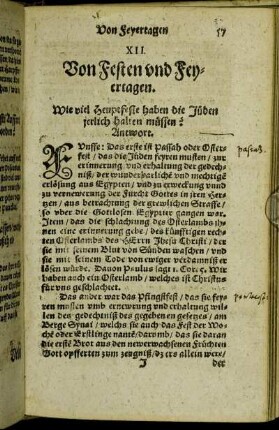 Von Feyertagen 57
XII.
Von Festen vnd Fey-
ertagen.
Wie viel Heuptfeste haben die Jüden
jerlich halten müssen?
Antwort.
Fvnffe: Das erste ist Passah oder Oster-
fest / das die Jüden feyren musten / zur
erinnerung vnd erhaltung der gedech-
niß / der wunderparliche vnd mechtige
erlösung aus Egypten / vnd zu erweckung vnnd
zu vernewerung der Furcht Gottes in jren Her-
tzen / aus betrachtung der grewlichen Straffe /
so vber die Gottlosen Egypter gangen war.
Item / das die schlachtung des Osterlambs jh-
nen eine erinnerung gebe / des künfftigen rech-
ten Osterlambs des HErrn Jhesu Christi / der
sie mit seinem Blut von Sünden waschen / vnd
sie mit seinem Tode von ewiger verdamniß er
lösen würde. Dauon Paulus sagt 1. Cor. 5. Wir
haben auch ein Osterlamb / welches ist Christus
für vns geschlachtet.
Das ander war das Pfingstfest / das sie feyr
en musten vmb ernewerung vnd erhaltung wil-
len des gedechtniß des gegeben gesetzes / am
Berge Synai / welchs sie auch das Fest der Wo-
che oder Erstlinge nante / darumb / das sie daran
die erste Brot aus den newerwachsenen Früchten
Gott opfferten zum zeugniß / dz ers allein were /
J der